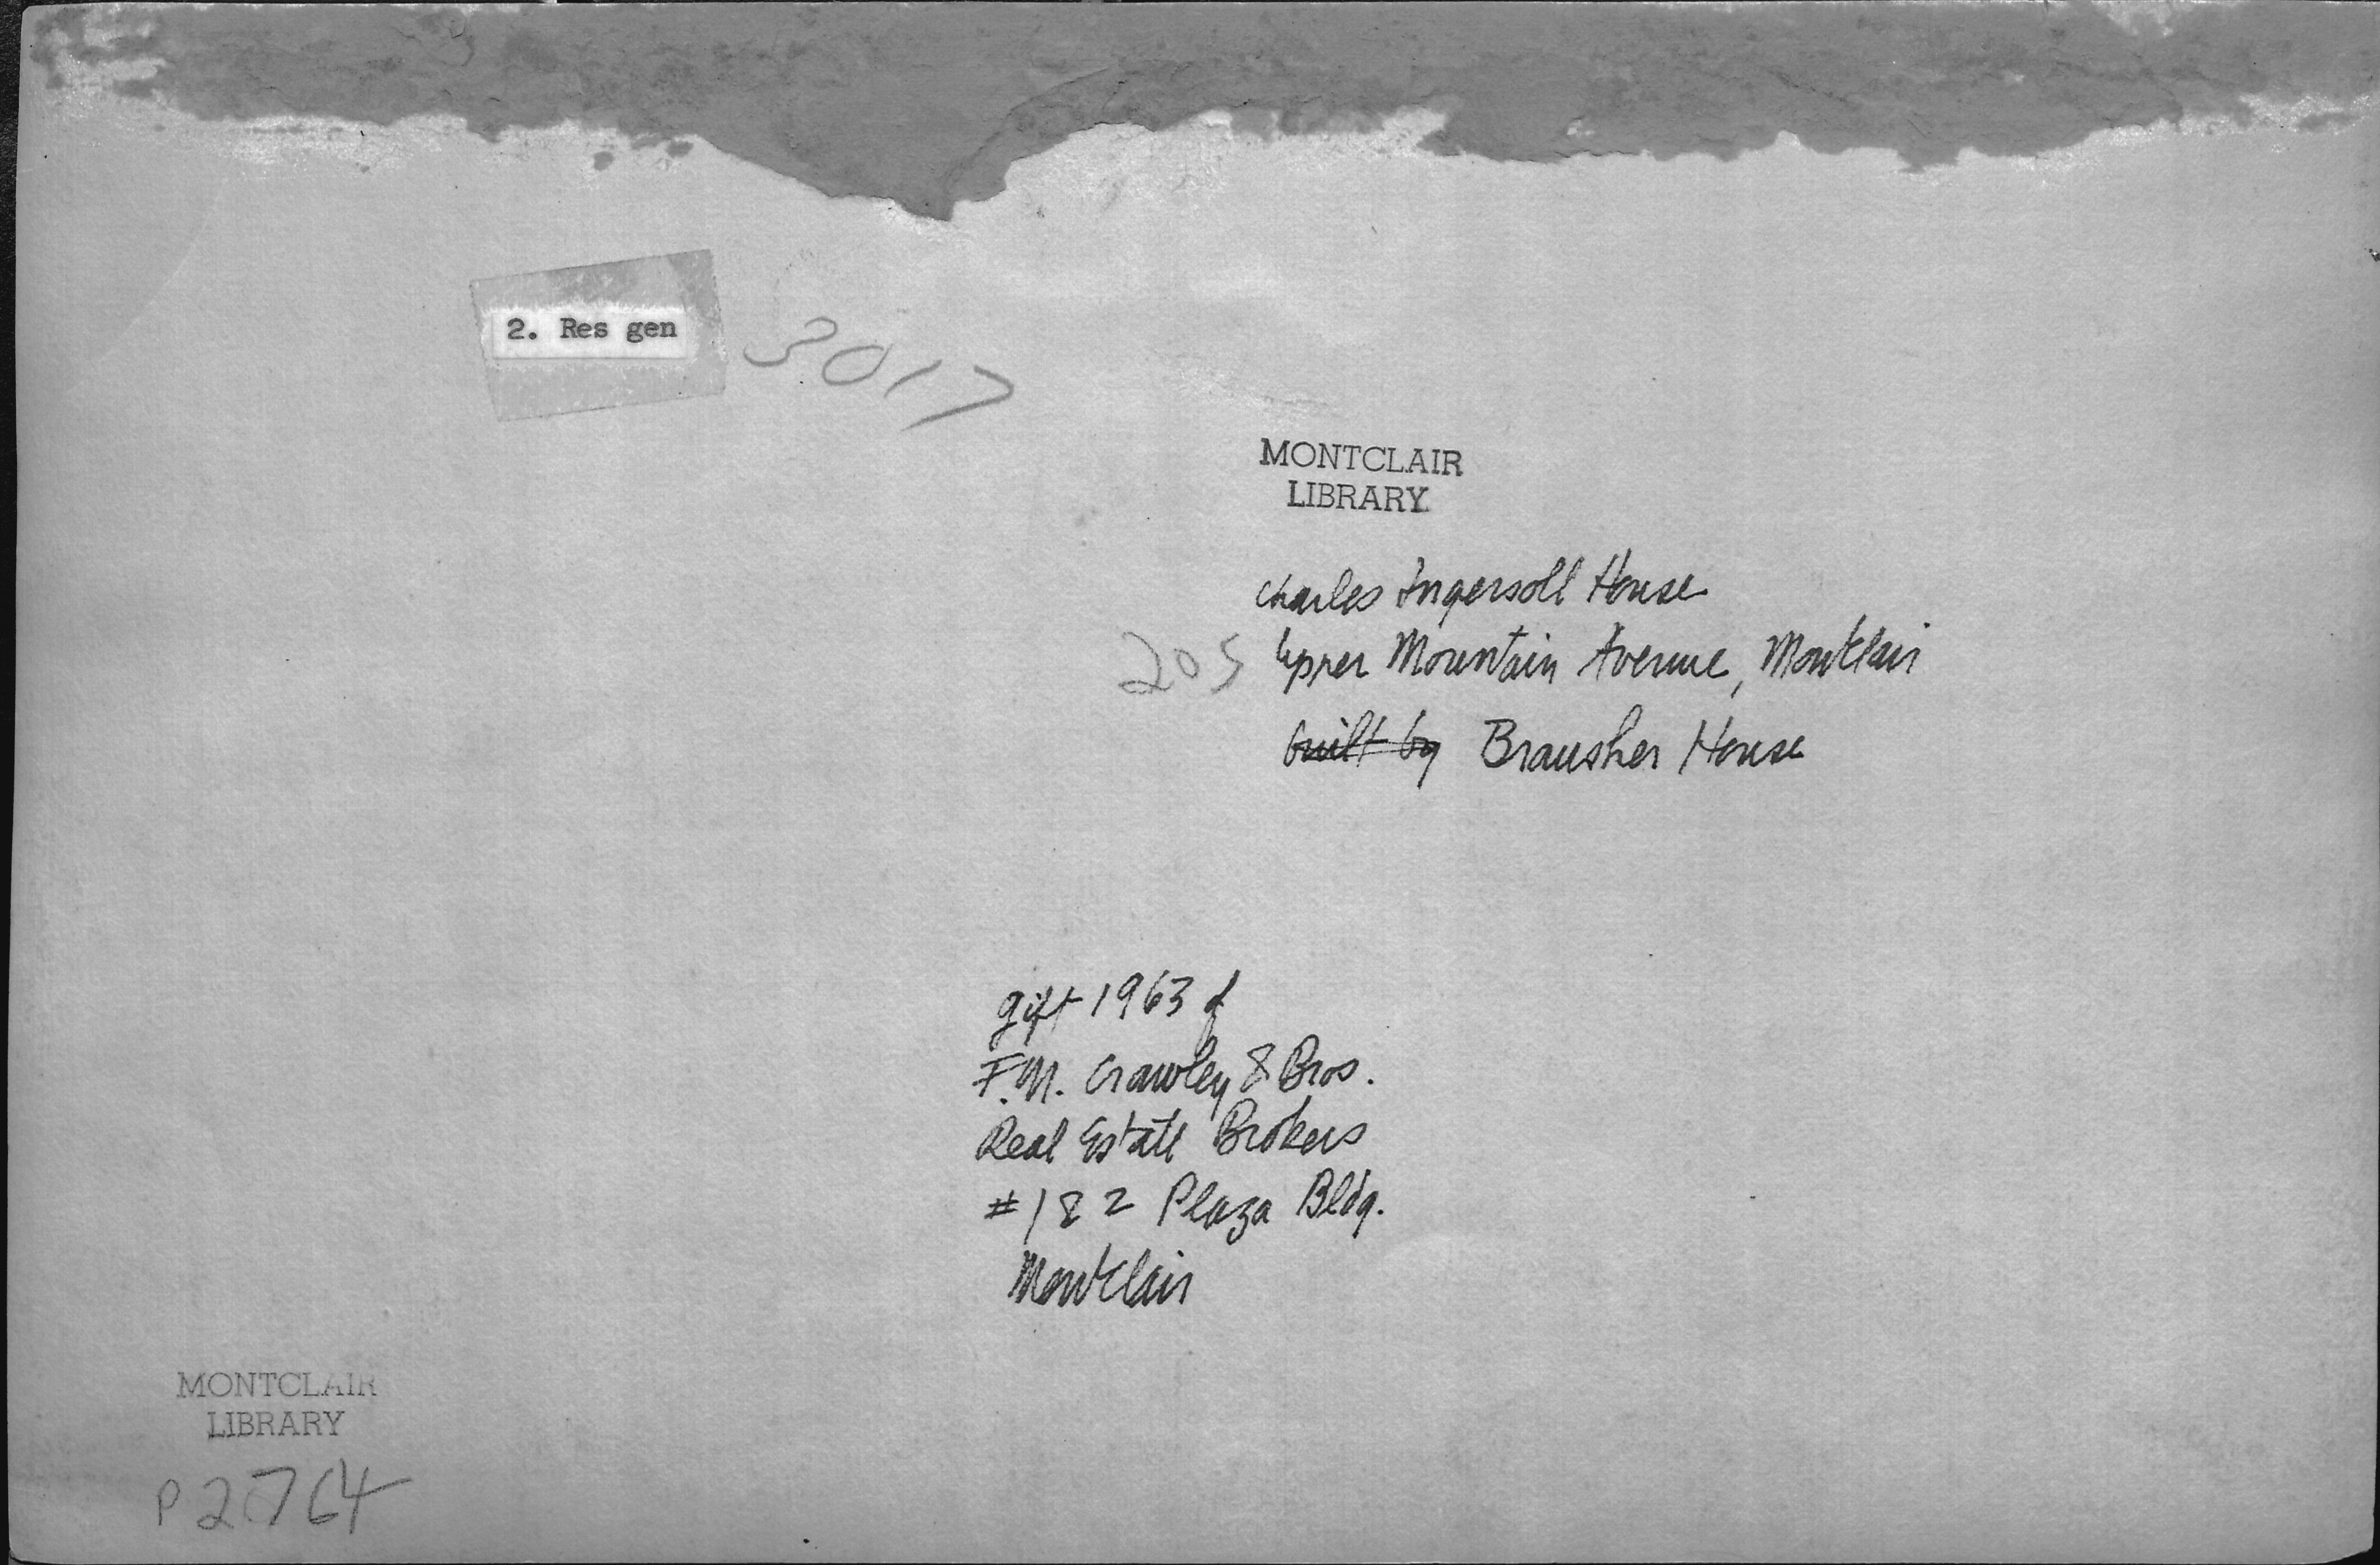 2. Res gen
3017
MONTCLAIR
LIBRARY
Charles Ingersoll House
205 Upper Mountain Avenue, Montclair
built by Brausher House
gift 1963 of
F.M. Crawley & Bros.
Real Estate Brokers
#182 Plaza Bldg.
Montclair
MONTCLAIR
LIBRARY
P2764